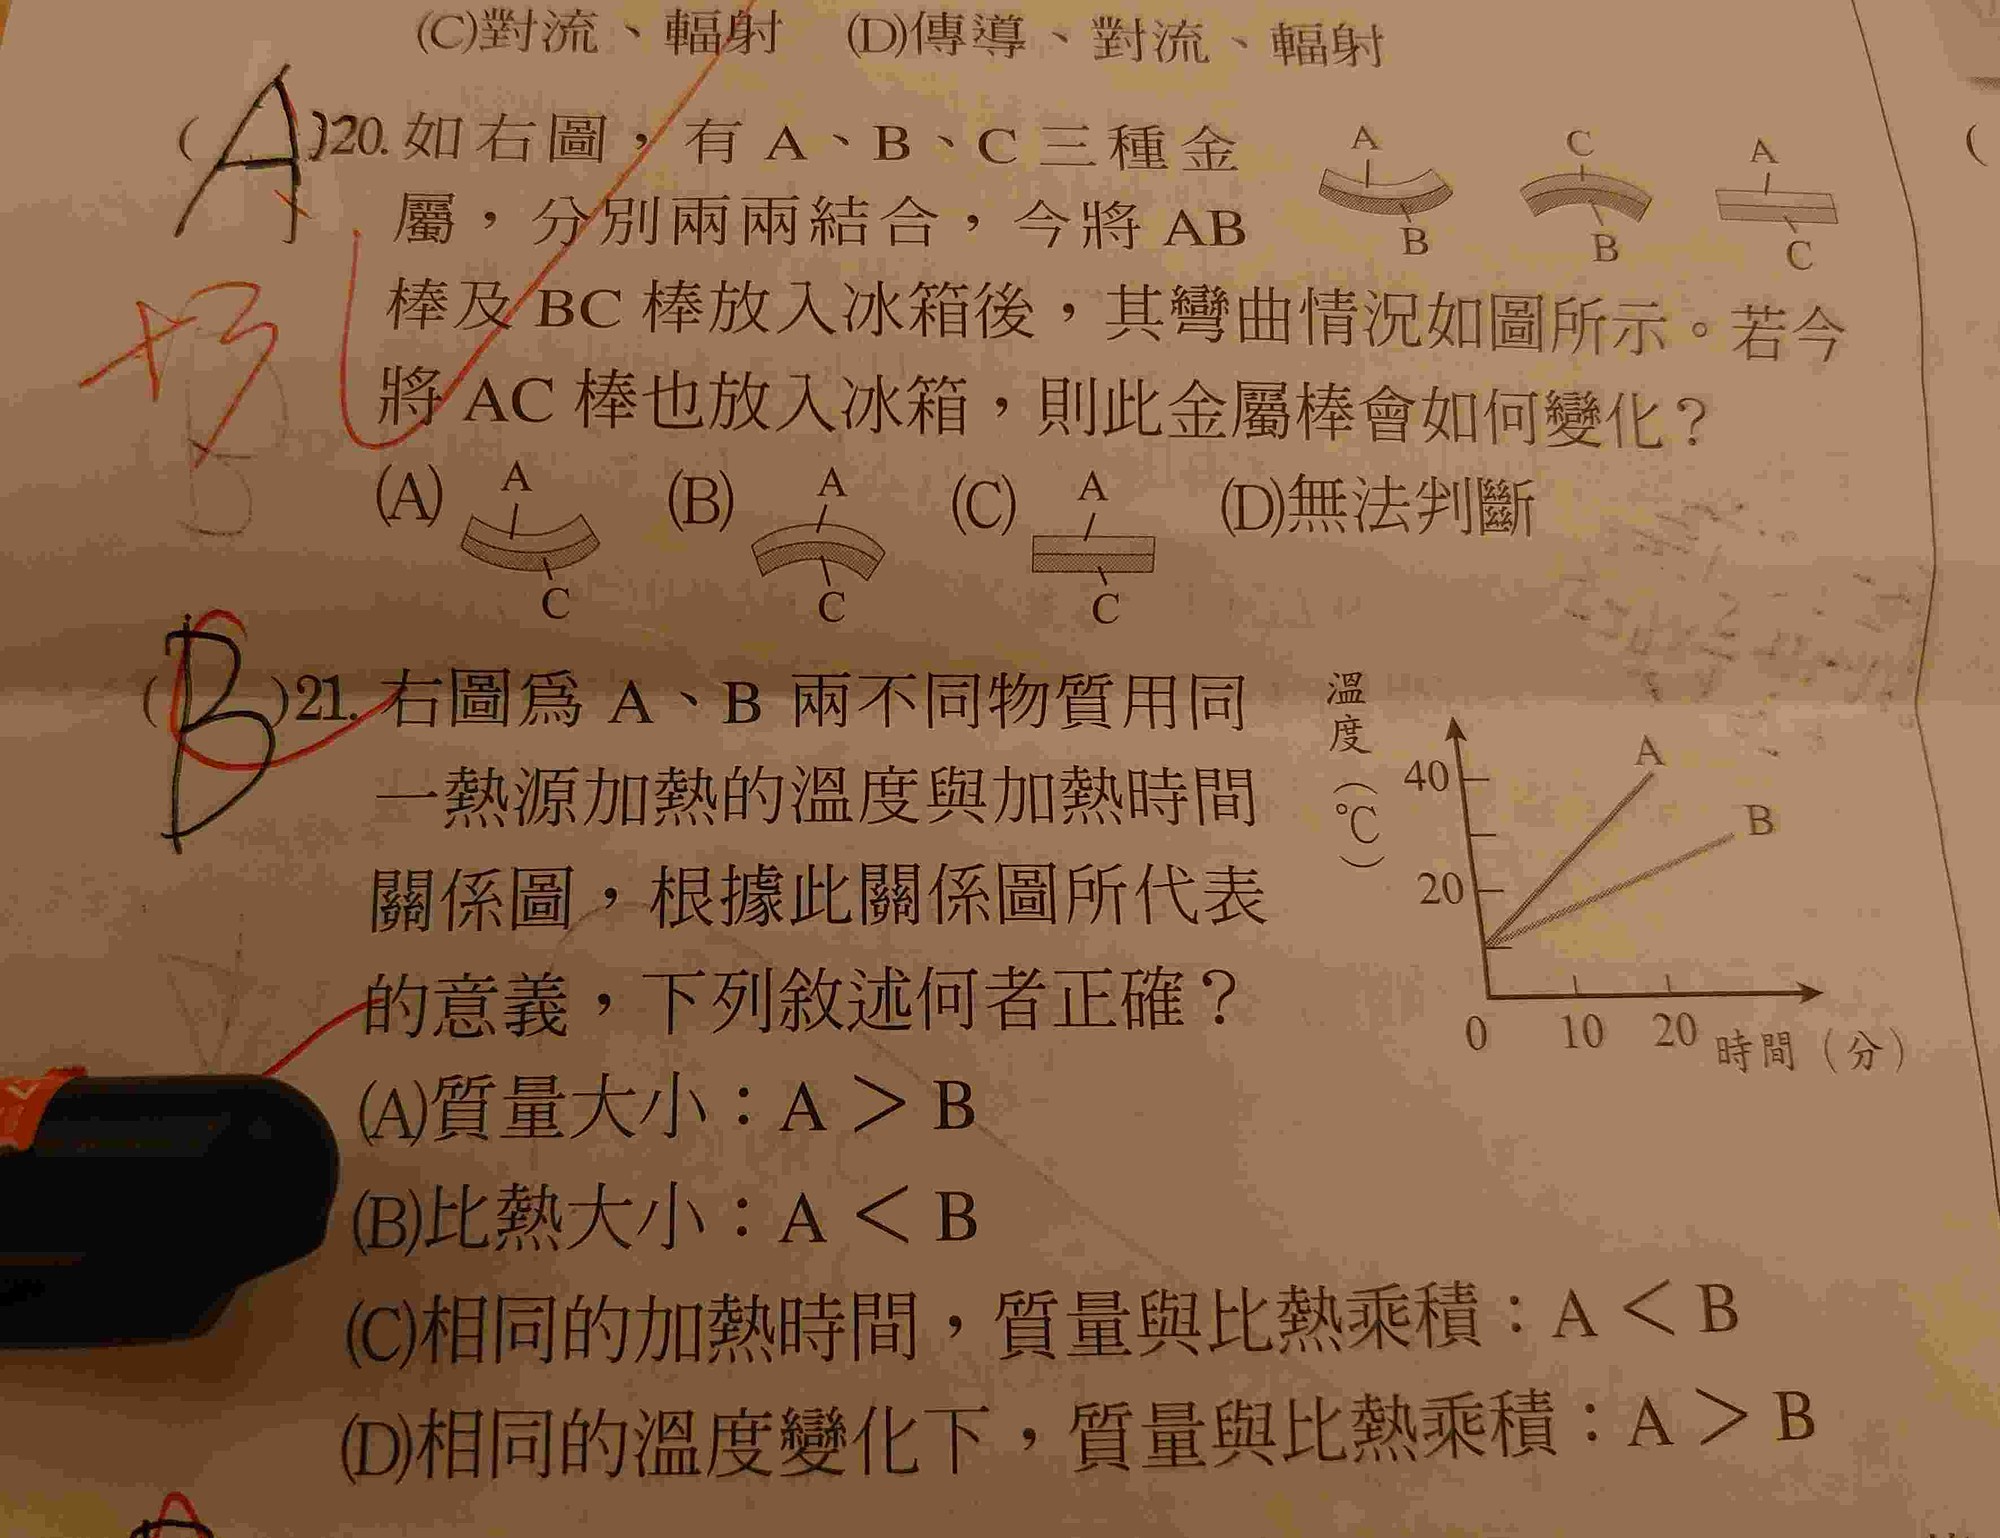 (C)對流、輻射　(D)傳導、對流、輻射
(A)20.如右圖，有A、B、C三種金
屬，分別兩兩結合，今將AB
棒及BC棒放入冰箱後，其彎曲情況如圖所示。若今
將AC棒也放入冰箱，則此金屬棒會如何變化？
A B
C B
A C
+3
(A) A C (B) A C (C) A C (D)無法判斷
(B)21.右圖為A、B兩不同物質用同
一熱源加熱的溫度與加熱時間
關係圖，根據此關係圖所代表
的意義，下列敘述何者正確？
溫度(℃)
40
20
A
B
0 10 20 時間(分)
(A)質量大小：A＞B
(B)比熱大小：A＜B
(C)相同的加熱時間，質量與比熱乘積：A＜B
(D)相同的溫度變化下，質量與比熱乘積：A＞B